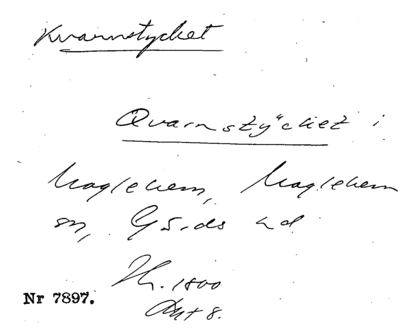 Kvarnstycket
Qvarnstycket i
Maglehem, Maglehem
sn, Gärds hd
1800
Akt 8.
Nr 7897.